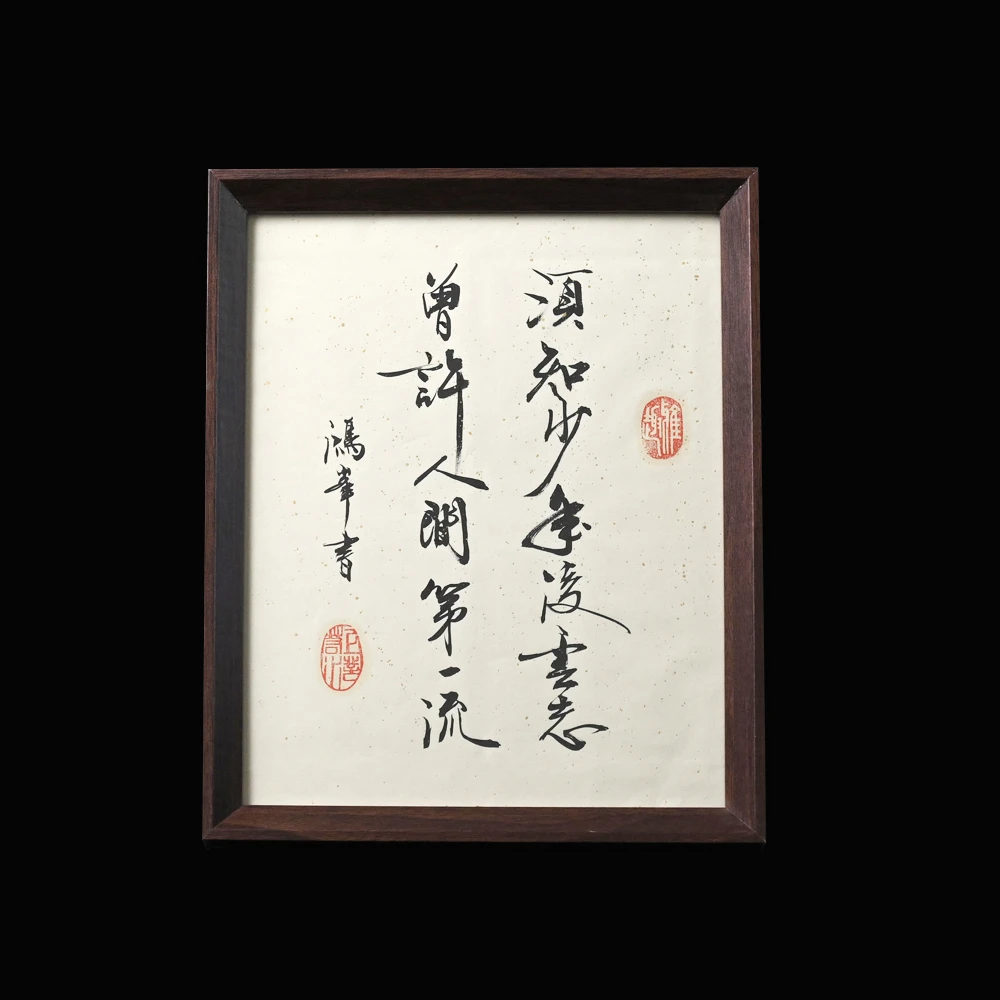 須知少年凌雲志
曾許人間第一流
鴻峯書